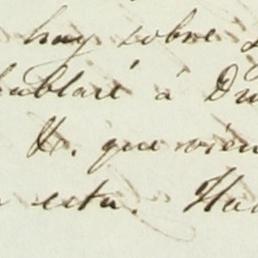 hay sobre
hablaré á
&. que vien
esta. Ha